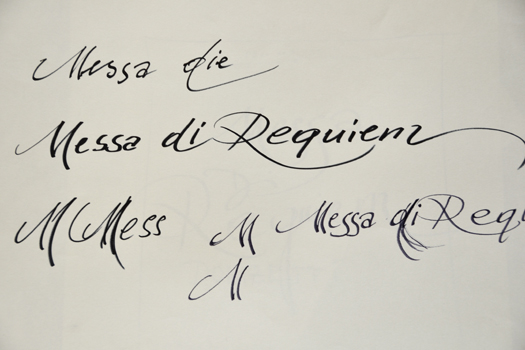 Messa die
Messa di Requiem
M Mess M Messa di Requ
M